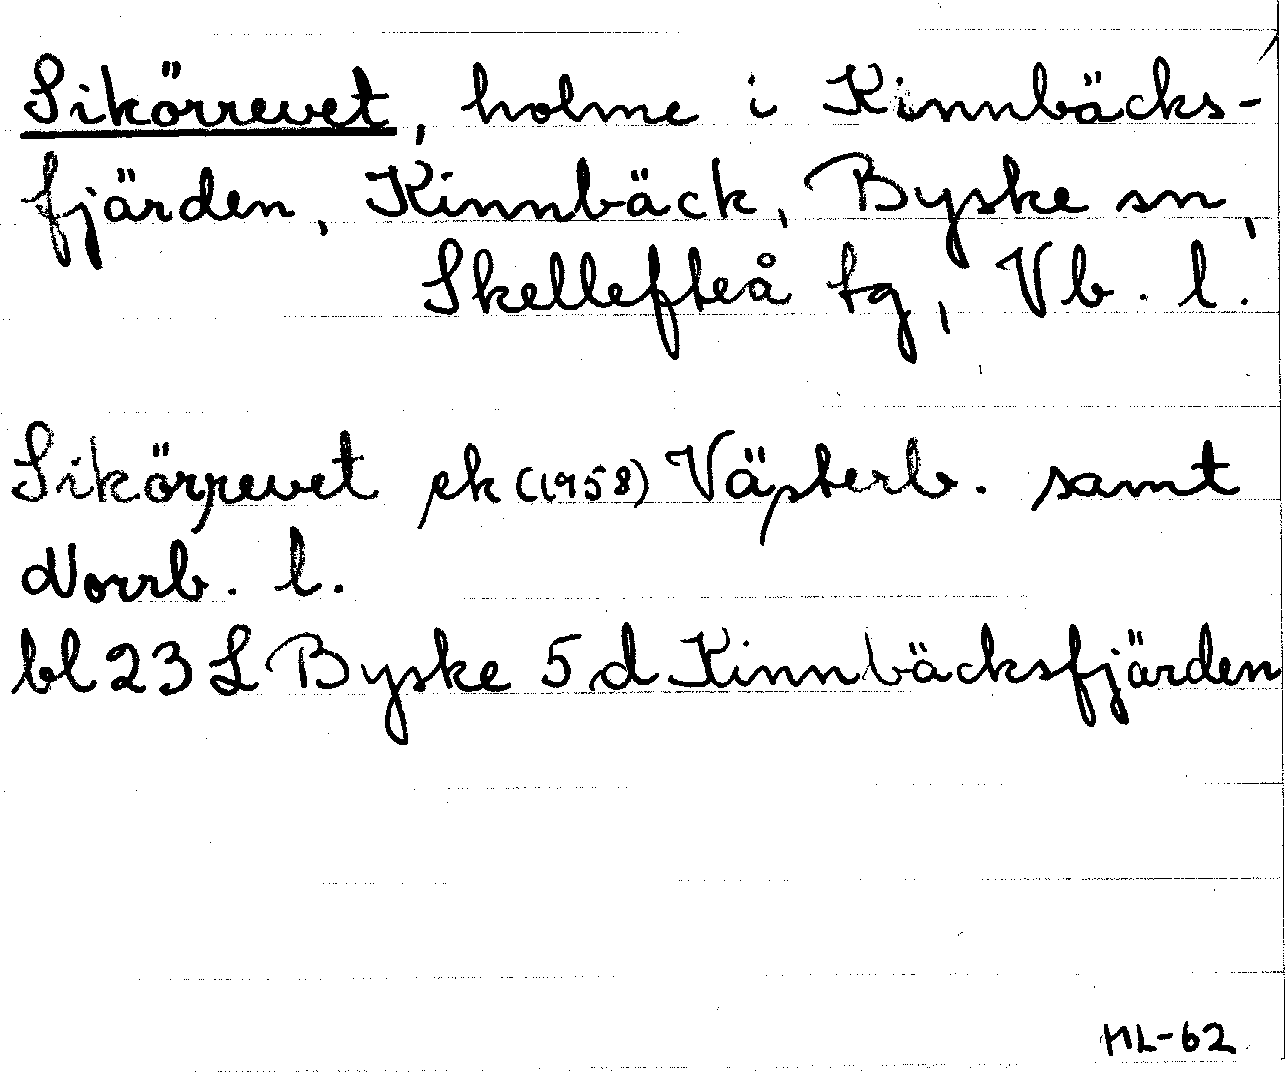 Sikörrevet, holme i Kinnbäcks-
fjärden, Kinnbäck, Byske sn,
Skellefteå tg, Vb. l.
Sikörrevet ek (1958) Västerb. samt
Norrb. l.
bl 23 L Byske 5 d Kinnbäcksfjärden
HL-62